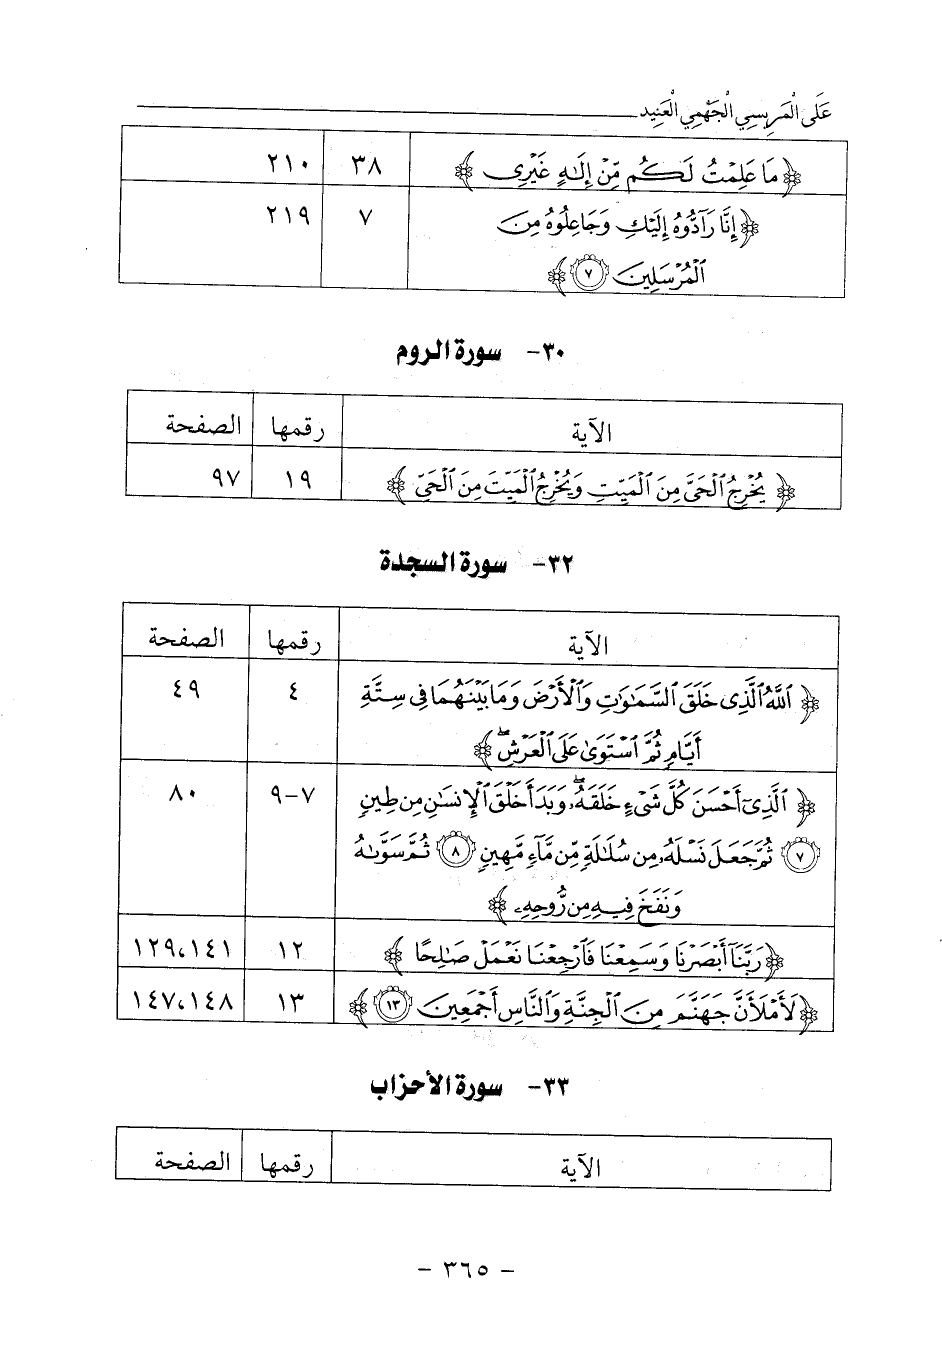 عَلَى الْمَرِيسِي الْجَهْمِي الْعَنِيد
﴿ مَا عَلِمْتُ لَكُم مِّنْ إِلَٰهٍ غَيْرِى ﴾ ٣٨ ٢١٠
﴿ إِنَّا رَآدُّوهُ إِلَيْكِ وَجَاعِلُوهُ مِنَ ٧ ٢١٩
ٱلْمُرْسَلِينَ ٧ ﴾
٣٠- سورة الروم
الآية رقمها الصفحة
﴿ يُخْرِجُ ٱلْحَىَّ مِنَ ٱلْمَيِّتِ وَيُخْرِجُ ٱلْمَيِّتَ مِنَ ٱلْحَىِّ ﴾ ١٩ ٩٧
٣٢- سورة السجدة
الآية رقمها الصفحة
﴿ ٱللَّهُ ٱلَّذِى خَلَقَ ٱلسَّمَٰوَٰتِ وَٱلْأَرْضَ وَمَا بَيْنَهُمَا فِى سِتَّةِ ٤ ٤٩
أَيَّامٍ ثُمَّ ٱسْتَوَىٰ عَلَى ٱلْعَرْشِۖ ﴾
﴿ ٱلَّذِىٓ أَحْسَنَ كُلَّ شَىْءٍ خَلَقَهُۥۖ وَبَدَأَ خَلْقَ ٱلْإِنسَٰنِ مِن طِينٍ ٧-٩ ٨٠
٧ ثُمَّ جَعَلَ نَسْلَهُۥ مِن سُلَٰلَةٍ مِّن مَّآءٍ مَّهِينٍ ٨ ثُمَّ سَوَّىٰهُ
وَنَفَخَ فِيهِ مِن رُّوحِهِۦ ﴾
﴿ رَبَّنَآ أَبْصَرْنَا وَسَمِعْنَا فَٱرْجِعْنَا نَعْمَلْ صَٰلِحًا ﴾ ١٢ ١٢٩،١٤١
﴿ لَأَمْلَأَنَّ جَهَنَّمَ مِنَ ٱلْجِنَّةِ وَٱلنَّاسِ أَجْمَعِينَ ١٣ ﴾ ١٣ ١٤٧،١٤٨
٣٣- سورة الأحزاب
الآية رقمها الصفحة
- ٣٦٥ -